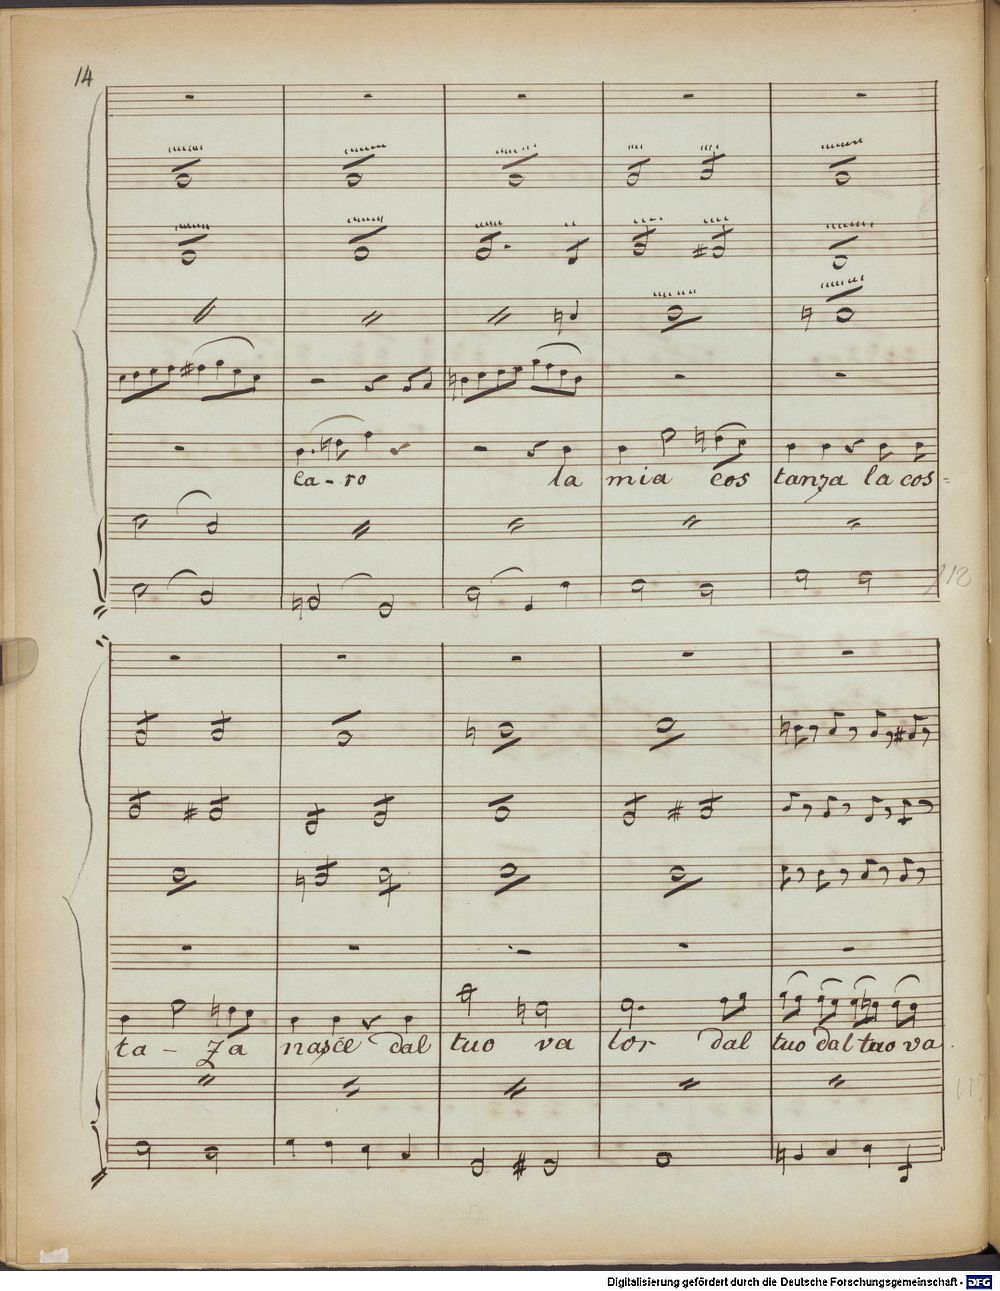 14
ca-ro la mia cos tanza la cos=
112
ta-za nasce dal tuo va lor dal tuo dal tuo va
117
Digitalisierung gefördert durch die Deutsche Forschungsgemeinschaft - DFG